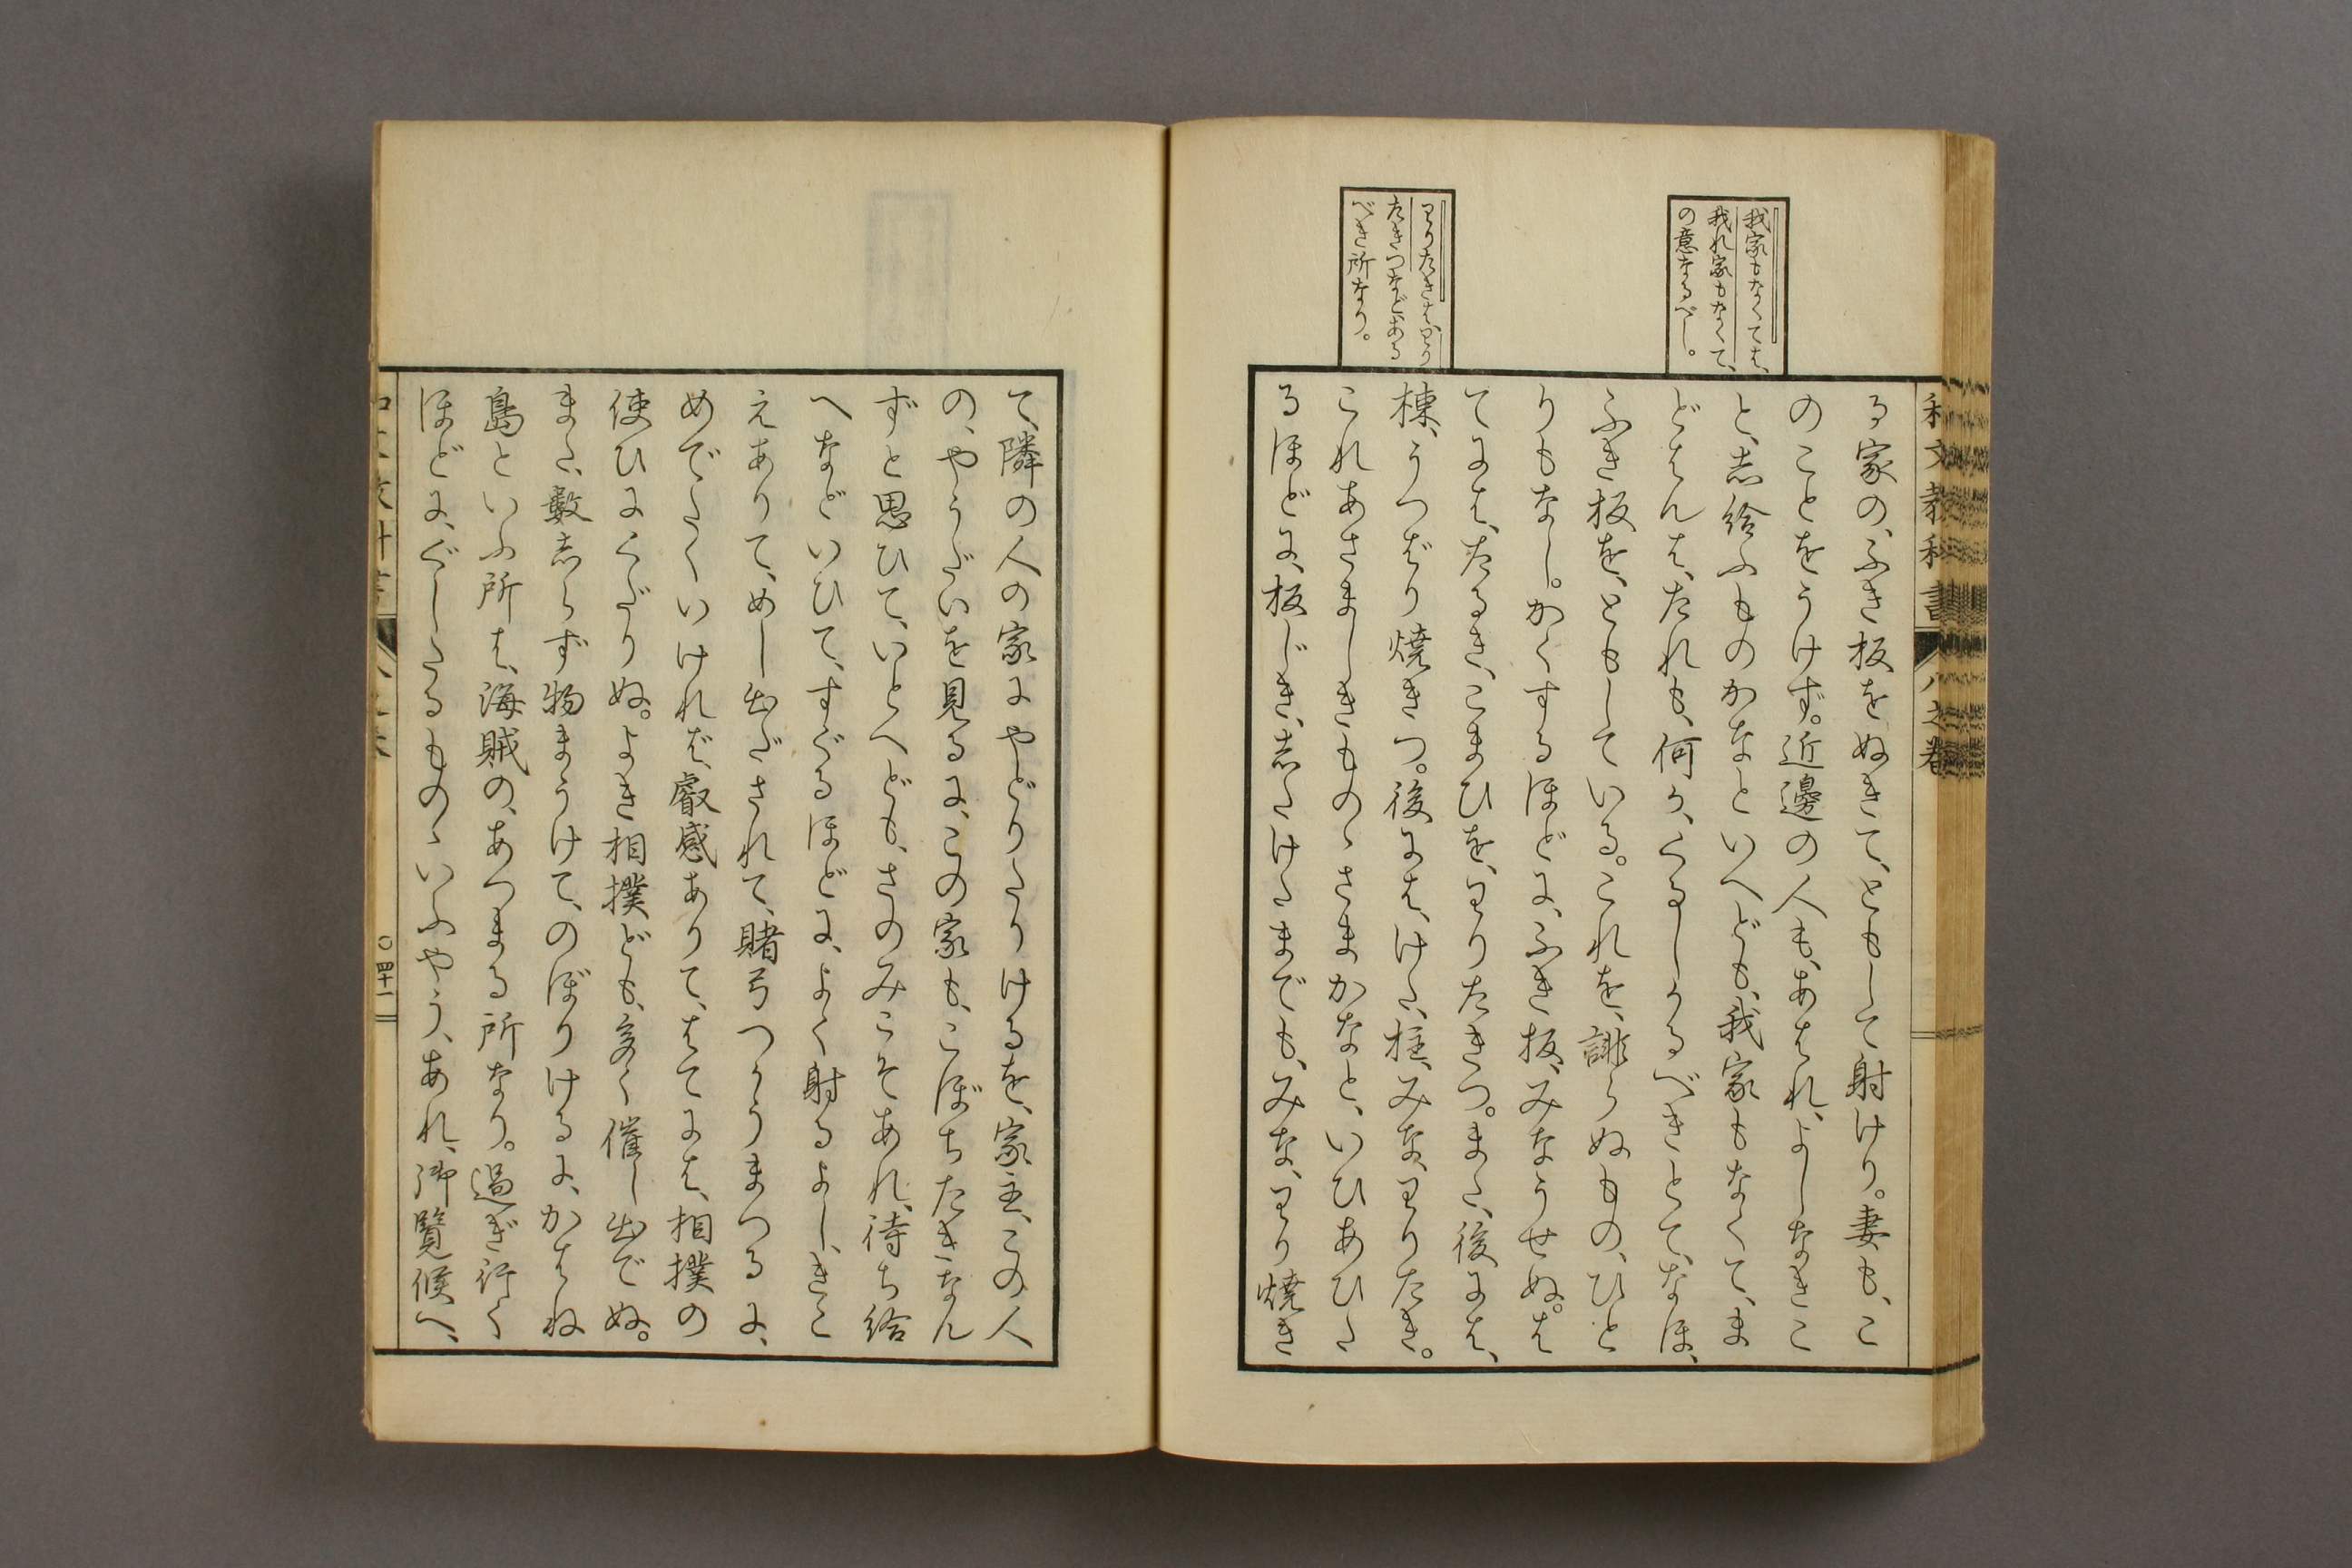 和文教科書 八之卷
我家もなくては、
我れ家もなくて、
の意なるべし。
わりたきは、わり
たきつなどある
べき所なり。
る家の、ふき板をぬきて、ともして射けり。妻も、こ
のことをうけず。近邊の人も、あはれ、よしなきこ
と、志給ふものかなといへども、我家もなくて、ま
どはんは、たれも、何か、くるしかるべきとて、なほ、
ふき板を、ともしている。これを、誹らぬもの、ひと
りもなし。かくするほどに、ふき板、みなうせぬ。は
てには、たるき、こまひを、わりたきつ。また、後には、
棟、うつばり焼きつ。後には、けた、柱、みな、わりたき。
これあさましきものゝさまかなと、いひあひた
るほどに、板じき、志たけたまでも、みな、わり焼き
て、隣の人の家にやどりたりけるを、家主、この人
の、やうだいを見るに、この家も、こぼちたきなん
ずと思ひて、いとへども、さのみこそあれ、待ち給
へなどいひて、すぐるほどに、よく射るよし、きこ
えありて、めし出だされて、賭弓つかうまつるに、
めでたくいければ、叡感ありて、はてには、相撲の
使ひにくだりぬ。よき相撲ども、多く催し出でぬ。
また、數志らず物まうけて、のぼりけるに、かはね
島といふ所は、海賊の、あつまる所なり。過ぎ行く
ほどに、ぐしたるものゝいふやう、あれ、御覽候へ、
〇四十一